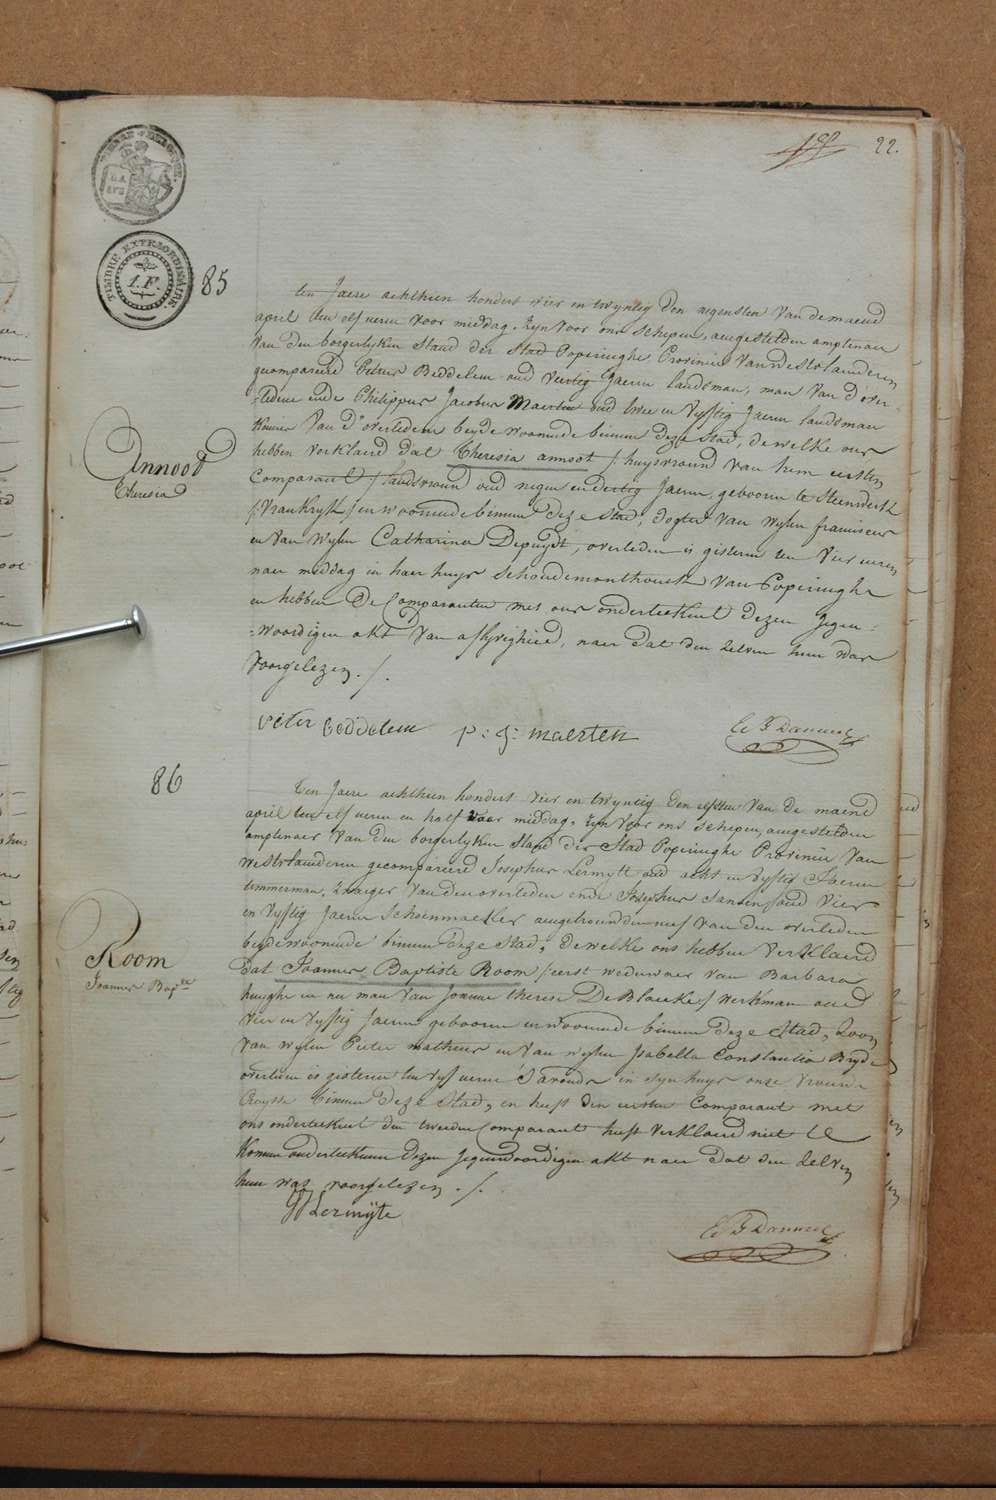 22.
TIMBRE EXTRAORDINAIRE
1.F.
85
ten Jaere achthien hondert vier en twyntig den negensten van de maend
april ten elf ueren voor middag, zyn voor ons schepen, aengestelden amptenaer
van den borgerlyken Stand der Stad Poperinghe Provincie van Westvlaenderen
gecompareerd Petrus Beddelem oud veertig Jaeren landsman, man van d'over-
=ledene ende Philippus Jacobus Maerten oud twee en vyftig Jaeren landsman
van d'overledene beyde woonende binnen deze Stad, dewelke ons
hebben verklaerd dat Theresia annoot /:huysvrouw van hem eersten
Comparant:/ landsvrouw oud negen en dertig Jaeren, geboren te Steenwerck
/:Vrankryk:/ en woonende binnen deze Stad, dogter van wylen franciscus
en van wylen Catharina Depuydt, overleden is gisteren ten vier ueren
naer middag in haer huys van Poperinghe
en hebben de Comparanten met ons onderteekent dezen Jegen-
=woordigen akt van aflyvigheid, naer dat den zelven hun was
voorgelezen./.
Annoot
Theresia
peter beddelem p: j: maerten
86
Ten Jaere achthien hondert vier en twyntig den elfsten van de maend
april ten elf ueren en half voor middag, zyn voor ons schepen, aengestelden
amptenaer van den borgerlyken Stand der Stad Poperinghe Provincie van
Westvlaenderen gecompareerd Josephus Lermyte oud acht en vyftig Jaeren
timmerman, zwager van den overleden ende Josephus Jansen oud vier
en vyftig Jaeren schoenmaeker aengetrouwden neef van den overleden
beyde woonende binnen deze Stad, dewelke ons hebben verklaerd
dat Joannes Baptiste Room /:eerst weduwnaer van Barbara
huyghe en nu man van Joanne therese De Blaucke:/ werkman oud
vier en vyftig Jaeren geboren en woonende binnen deze Stad, Zoon
van wylen Pieter matheus en van wylen Isabella Constantia Bryde
overleden is gisteren ten vyf ueren 's avonds in zyn huys onze vrouwe
binnen deze Stad, en heeft den eersten Comparant met
ons onderteekent den tweeden Comparant heeft verklaerd niet te
konnen onderteekenen dezen Jegenwoordigen akt naer dat den zelven
hun was voorgelezen./.
Room
Joannes Bap.te
Lermyte